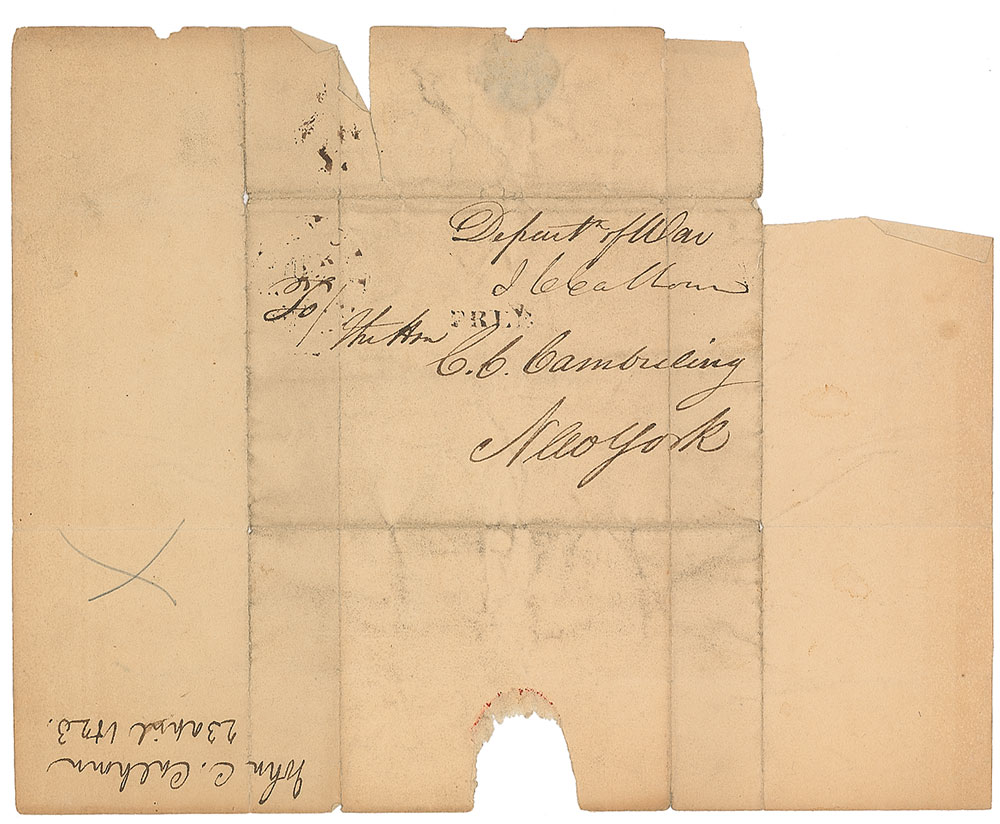 Depart. of War
J C Calhoun
FREE
To/
The Hon
C. C. Cambreling
New York
John C. Calhoun
23 April 1823.